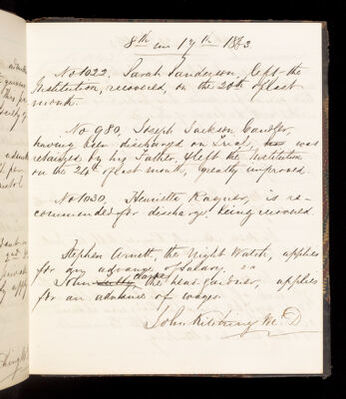 8th mo 17th 1863
No 1022. Sarah Sanderson, left the
Institution, recovered, on the 20th of last
month.
No 980, Joseph Jackson Candler,
having been discharged on Trial, was
retained by his Father, & left the Institution
on the 24th of last month, greatly improved.
No 1030, Henrietta Rayner, is re-
commended for discharge, being recovered.
Stephen Arnett, the Night Watch, applies
for an advance of Salary.
John the head Gardner, applies
for an advance of wages.
John Kitching M.D